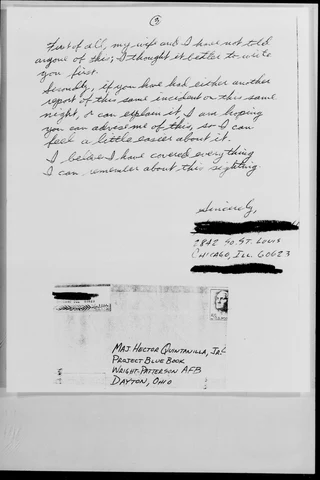 3
First of all, my wife and I have not told
anyone of this; I thought it better to write
you first.
Secondly, if you have had either another
report of this same incident on this same
night, or can explain it I am hoping
you can advise me of this, so I can
feel a little easier about it.
I believe I have covered everything
I can remember about this sighting.
Sincerely,
2842 SO. ST. LOUIS
CHICAGO, ILL. 60623
MAJ. HECTOR QUINTANILLA, JR.
PROJECT BLUE BOOK
WRIGHT-PATTERSON AFB
DAYTON, OHIO